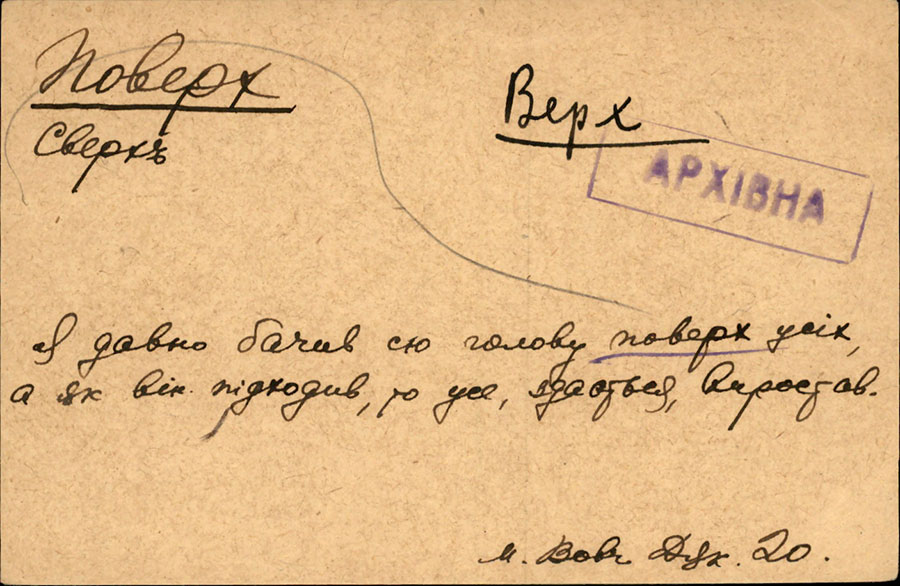 Поверх
Сверхъ
Верх
АРХІВНА
Я давно бачив сю голову поверх усіх,
а як він підходив, то усе, здається, виростав.
М. Вовч. Дяк. 20.